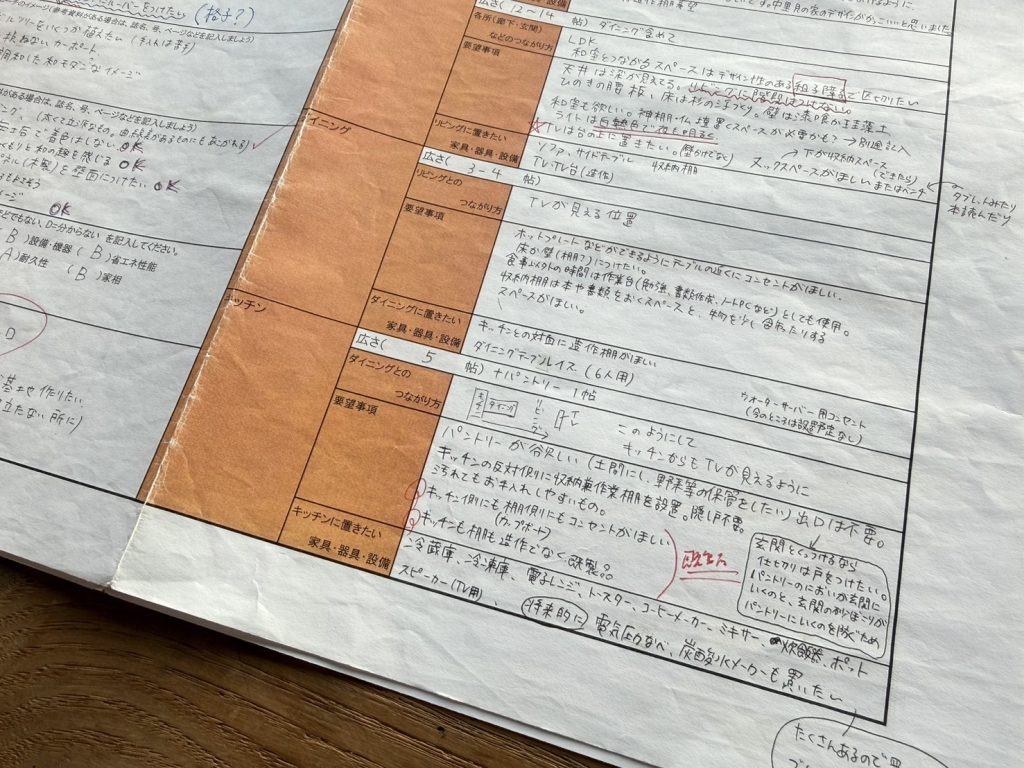 (格子?)
のイメージ(参考資料がある場合は、誌名、号、ページなどを記入しましょう)
調和した和モダンなイメージ
がある場合は、誌名、号、ページなどを記入しましょう)
着色はしない OK
和の趣を感じる OK
(木製)を壁面につけたい OK
OK
どでもない、D=分からない を記入してください。
(B)設備・機器(B)省エネ性能
(A)耐久性 (B)家相
作りたい
立たない所に)
広さ(12~14 帖)ダイニング含めて
各所(廊下・玄関)などのつながり方
LDK
要望事項
和室とつながるスペースはデザイン性のある組子障子で区切りたい
天井は梁が見えてる。
ひのきの腰板、床は杉の浮づくり。壁は漆喰か珪藻土
和室も欲しい。神棚・仏壇置くスペースが必要かも?→別途記入
ライトは白熱色で夜も明るく
TVは台の上に置きたい。(壁かけでなく)
→下が収納スペース
(できたら)
リビングに置きたい家具・器具・設備
ソファ、サイドテーブル 収納棚
TV・TV台(造作)
ヌックスペースがほしいまたはベンチ
タブレットみたり
本読んだり
ダイニング
広さ(3-4 帖)
リビングとのつながり方
TVが見える位置
要望事項
ホットプレートなどができるようにテーブルの近くにコンセントがほしい。
床か壁(棚?)につけたい。
食事以外の時間は作業台(勉強、書類作成、ノートPCなど)としても使用。
収納棚は本や書類をおくスペースと、物を少し飾れたりする
スペースがほしい。
ダイニングに置きたい家具・器具・設備
キッチンとの対面に造作棚がほしい
ダイニングテーブル、イス(6人用)
キッチン
広さ(5 帖)+パントリー1帖
ダイニングとのつながり方
キッチン
ダイニング
リビング
TV
このようにして
キッチンからもTVが見えるように
ウォーターサーバー用コンセント
(今のところは設置予定なし)
要望事項
パントリーが欲しい(土間にし、野菜等の保管をしたい)出口は不要。
キッチンの反対側に収納兼作業棚を設置。隠し戸不要。
汚れてもお手入れしやすいもの。
キッチン側にも棚側にもコンセントがほしい
(カップボード)
キッチンも棚も造作でなく既製品
玄関とくっつけるなら
仕切りは戸をつけたい。
パントリーのにおいが玄関に
いくのと、玄関の砂ぼこりが
パントリーにいくのを防ぐため
キッチンに置きたい家具・器具・設備
冷蔵庫、冷凍庫、電子レンジ、トースター、コーヒーメーカー、ミキサー、炊飯器、ポット
スピーカー(TV用)、将来的に電気圧力なべ、炭酸水メーカーも買いたい
たくさんあるので